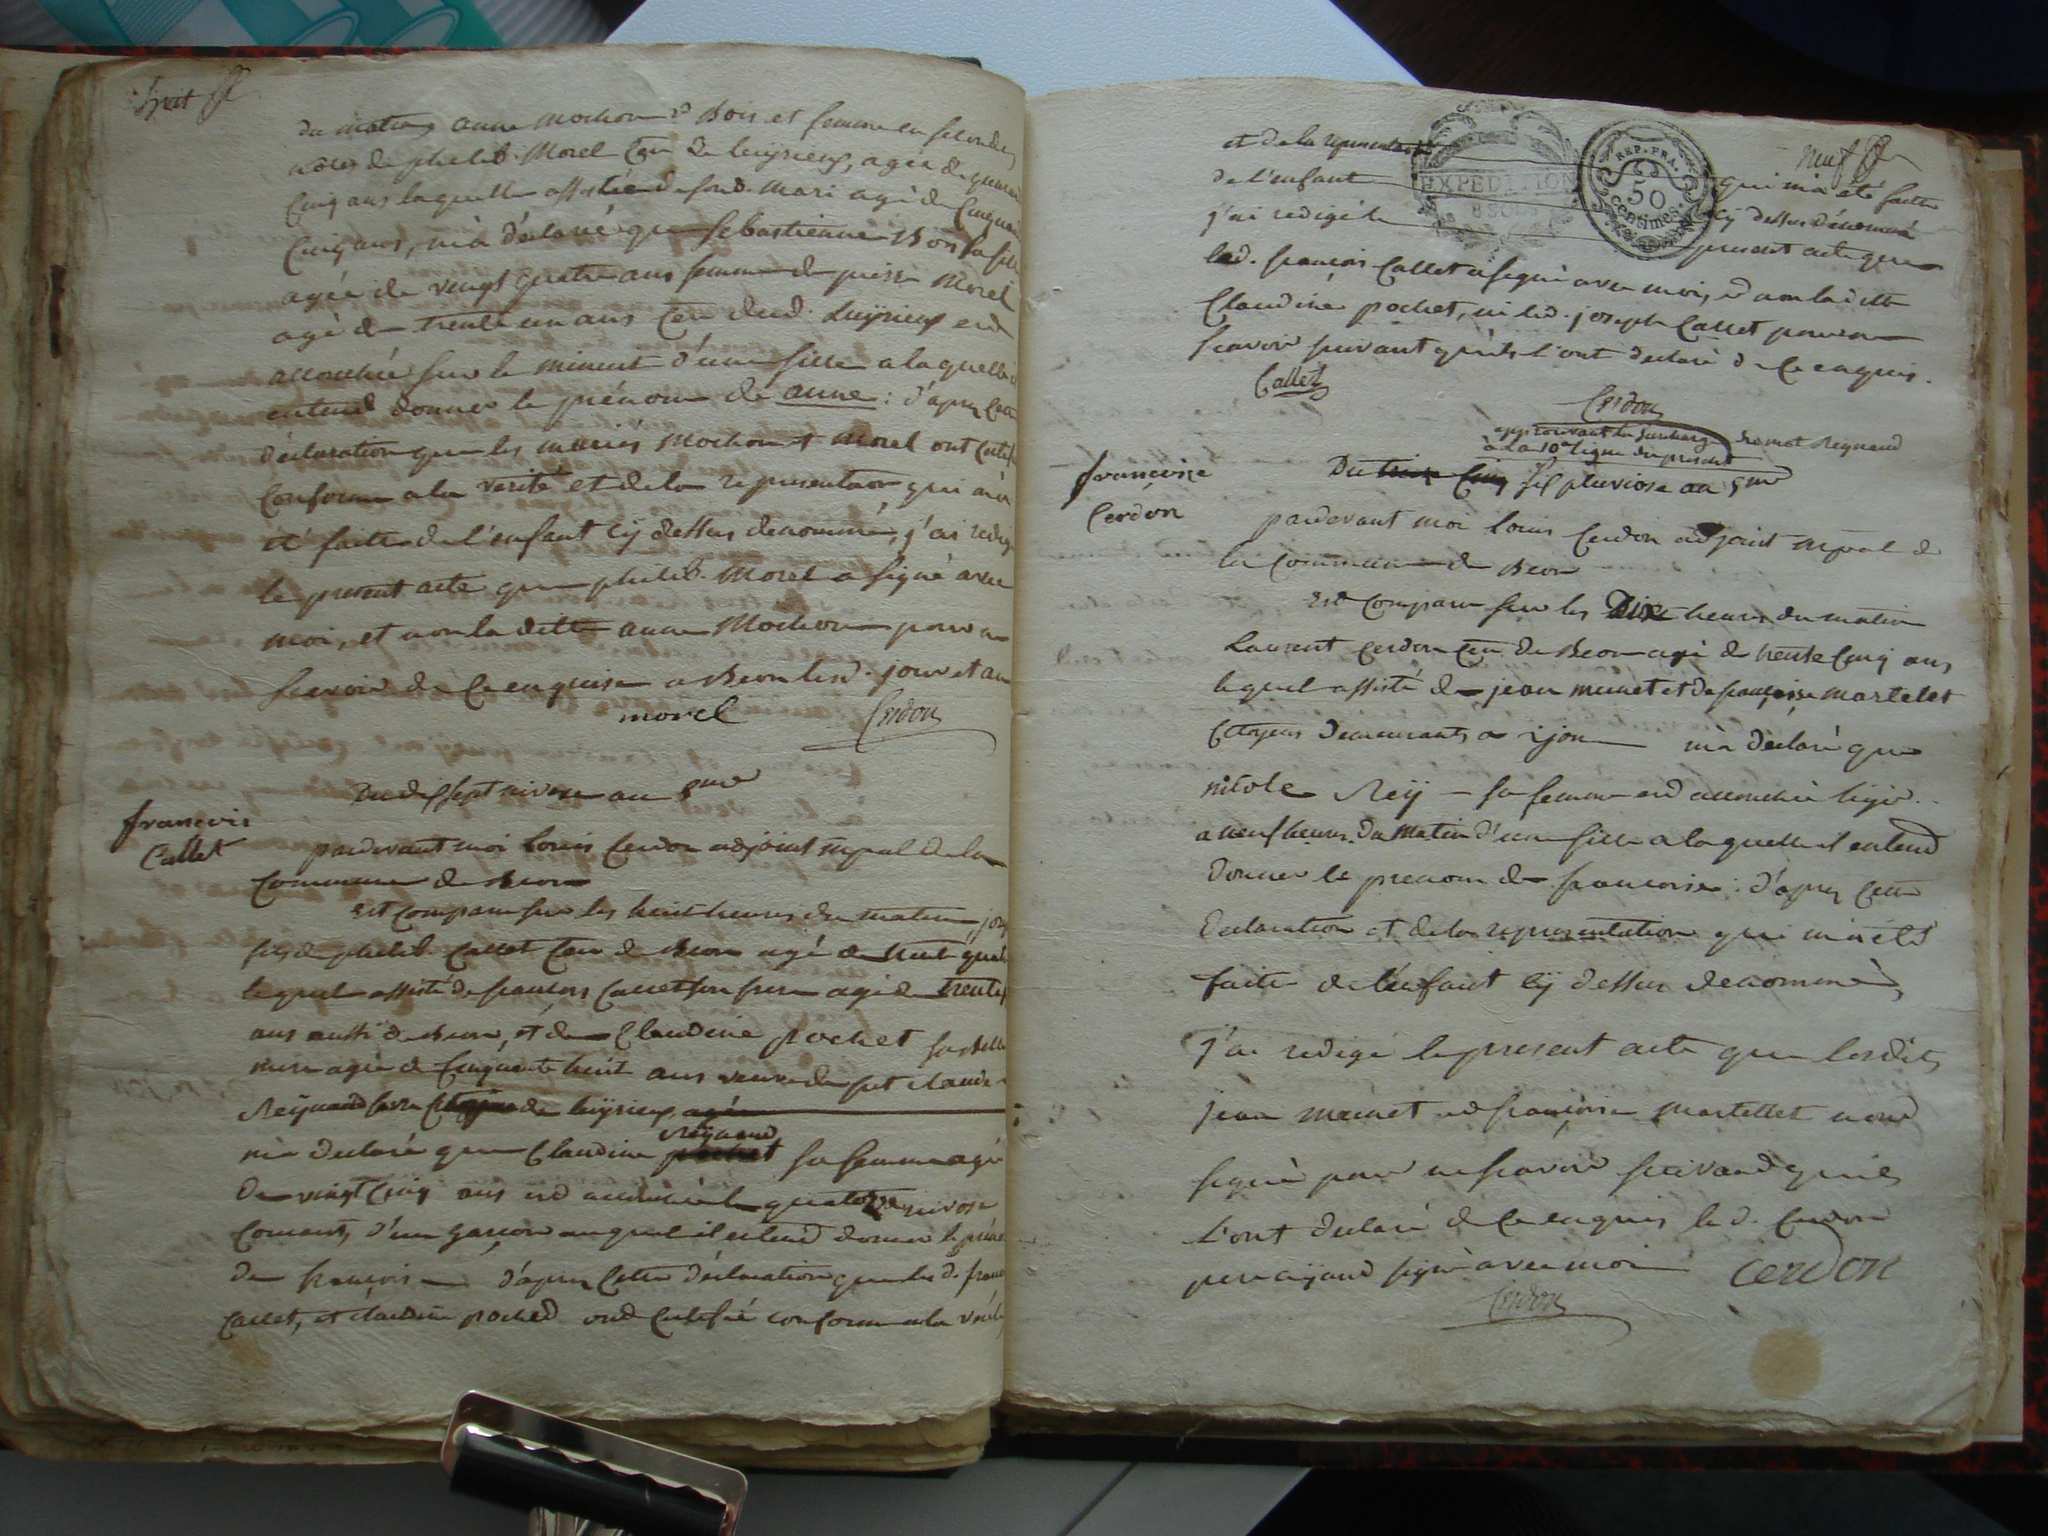 huit
du matin anne Mochon v.e Bois et femme en secondes
nôces de philib. Morel Cen de luÿrieux, agée de quarante
Cinq ans laquelle assistée de sond. mari agé de Cinquante
Cinq ans, m'a déclaré que Sebastienne Bois sa fille
agée de vingt quatre ans femme de pierre Morel
agé de trente un ans Cen dud. luÿrieux est
accouchée sur le minuit d'une fille a laquelle
entend donner le prénom de anne : d'après cette
déclaration que les mariés Mochon et Morel ont certifié
Conforme a la verité et de la representation qui m'a
été faite de l'enfant cÿ dessus denommé, j'ai redigé
le present acte que philib. Morel a signé avec
moi, et non la ditte anne Mochon pour ne
scavoir de Ce enquise a Beon lesd. jour et an
morel Cerdon
Du dix sept nivose an 5me
francois
Callet
pardevant moi louis Cerdon adjoint mpal de la
Commune de Beon
est comparu sur les huit heures du matin
fils de philib. Callet Cen de Beon agé de trente quatre
lequel assisté de francois Callet son frere agé de trente
ans aussi de Beon, et de Claudine pochet sa belle
mere agée de Cinquante huit ans veuve de fut claude
Reÿnaud de luÿrieux agée
Reÿnaud
m'a declaré que Claudine pochet sa femme agée
de vingt Cinq ans est accouchée le quatorze nivose
Courant, d'un garcon auquel il entend donner le prénom
de francois d'apres Cette déclaration que les d. francois
Callet, et claudine pochet ont certifié conforme a la verité
neuf
et de la representation qui m'a été faitte
EXPEDITION
REP. FRA.
50
centimes
de l'enfant cy dessus dénommé
j'ai redigé le present acte que
led. francois Callet a signé avec moi, et non la ditte
Claudine pochet, ni led. joseph Callet pour ne
scavoir suivant qu'ils l'ont declaré de Ce enquis.
Callet
Cerdon
approuvant la surcharge du mot Reynaud
à la 10e ligne du présent
francoise
Cerdon
Du trois Cinq six pluviose an 5me
pardevant moi louis Cerdon adjoint mpal de
la Commune de Beon
est comparu sur les Dix heures du matin
Laurent Cerdon Cen de Beon agé de trente Cinq ans
lequel assisté de jean munet et de françoise martelet
Citoyens demeurants a m'a déclaré que
nicole Reÿ sa femme est accouchée hier
a neuf heures du matin d'une fille a laquelle il entend
donner le prenom de francoise : d'après Cette
declaration et de la representation qui m'a été
faite de l'enfant cÿ dessus denommé,
j'ai redigé le present acte que lesdits
jean munet et françoise martellet n'ont
signé pour ne scavoir suivant qu'ils
l'ont declaré de Ce enquis le d. Cerdon
pere aÿant signé avec moi cerdon
Cerdon